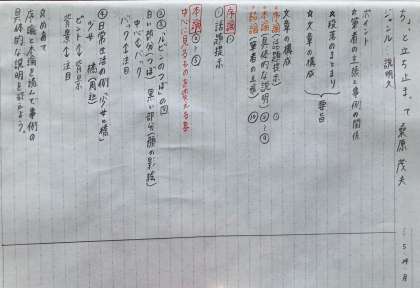 ちょっと立ち止まって 桑原茂夫
ジャンル 説明文
ポイント
☆筆者の主張と事例の関係
☆段落のまとまり
☆文章の構成
要旨
☆文章の構成
・序論(話題提示) ①
・本論(具体的な説明) ②〜⑨
・結論(筆者の主張) ⑩
序論 ①
①話題提示
本論 ②〜⑤
中心に見るものを変える事
②③「ルビンのつぼ」の図
白い部分(つぼ) 黒い部分(顔の影絵)
中心とバック
バックに注目
④日常生活の例「少女と橋」
少女 橋(周辺)
ピントと背景
背景に注目
☆めあて
序論と本論を読んで事例の
具体的な説明を探そう。
5月